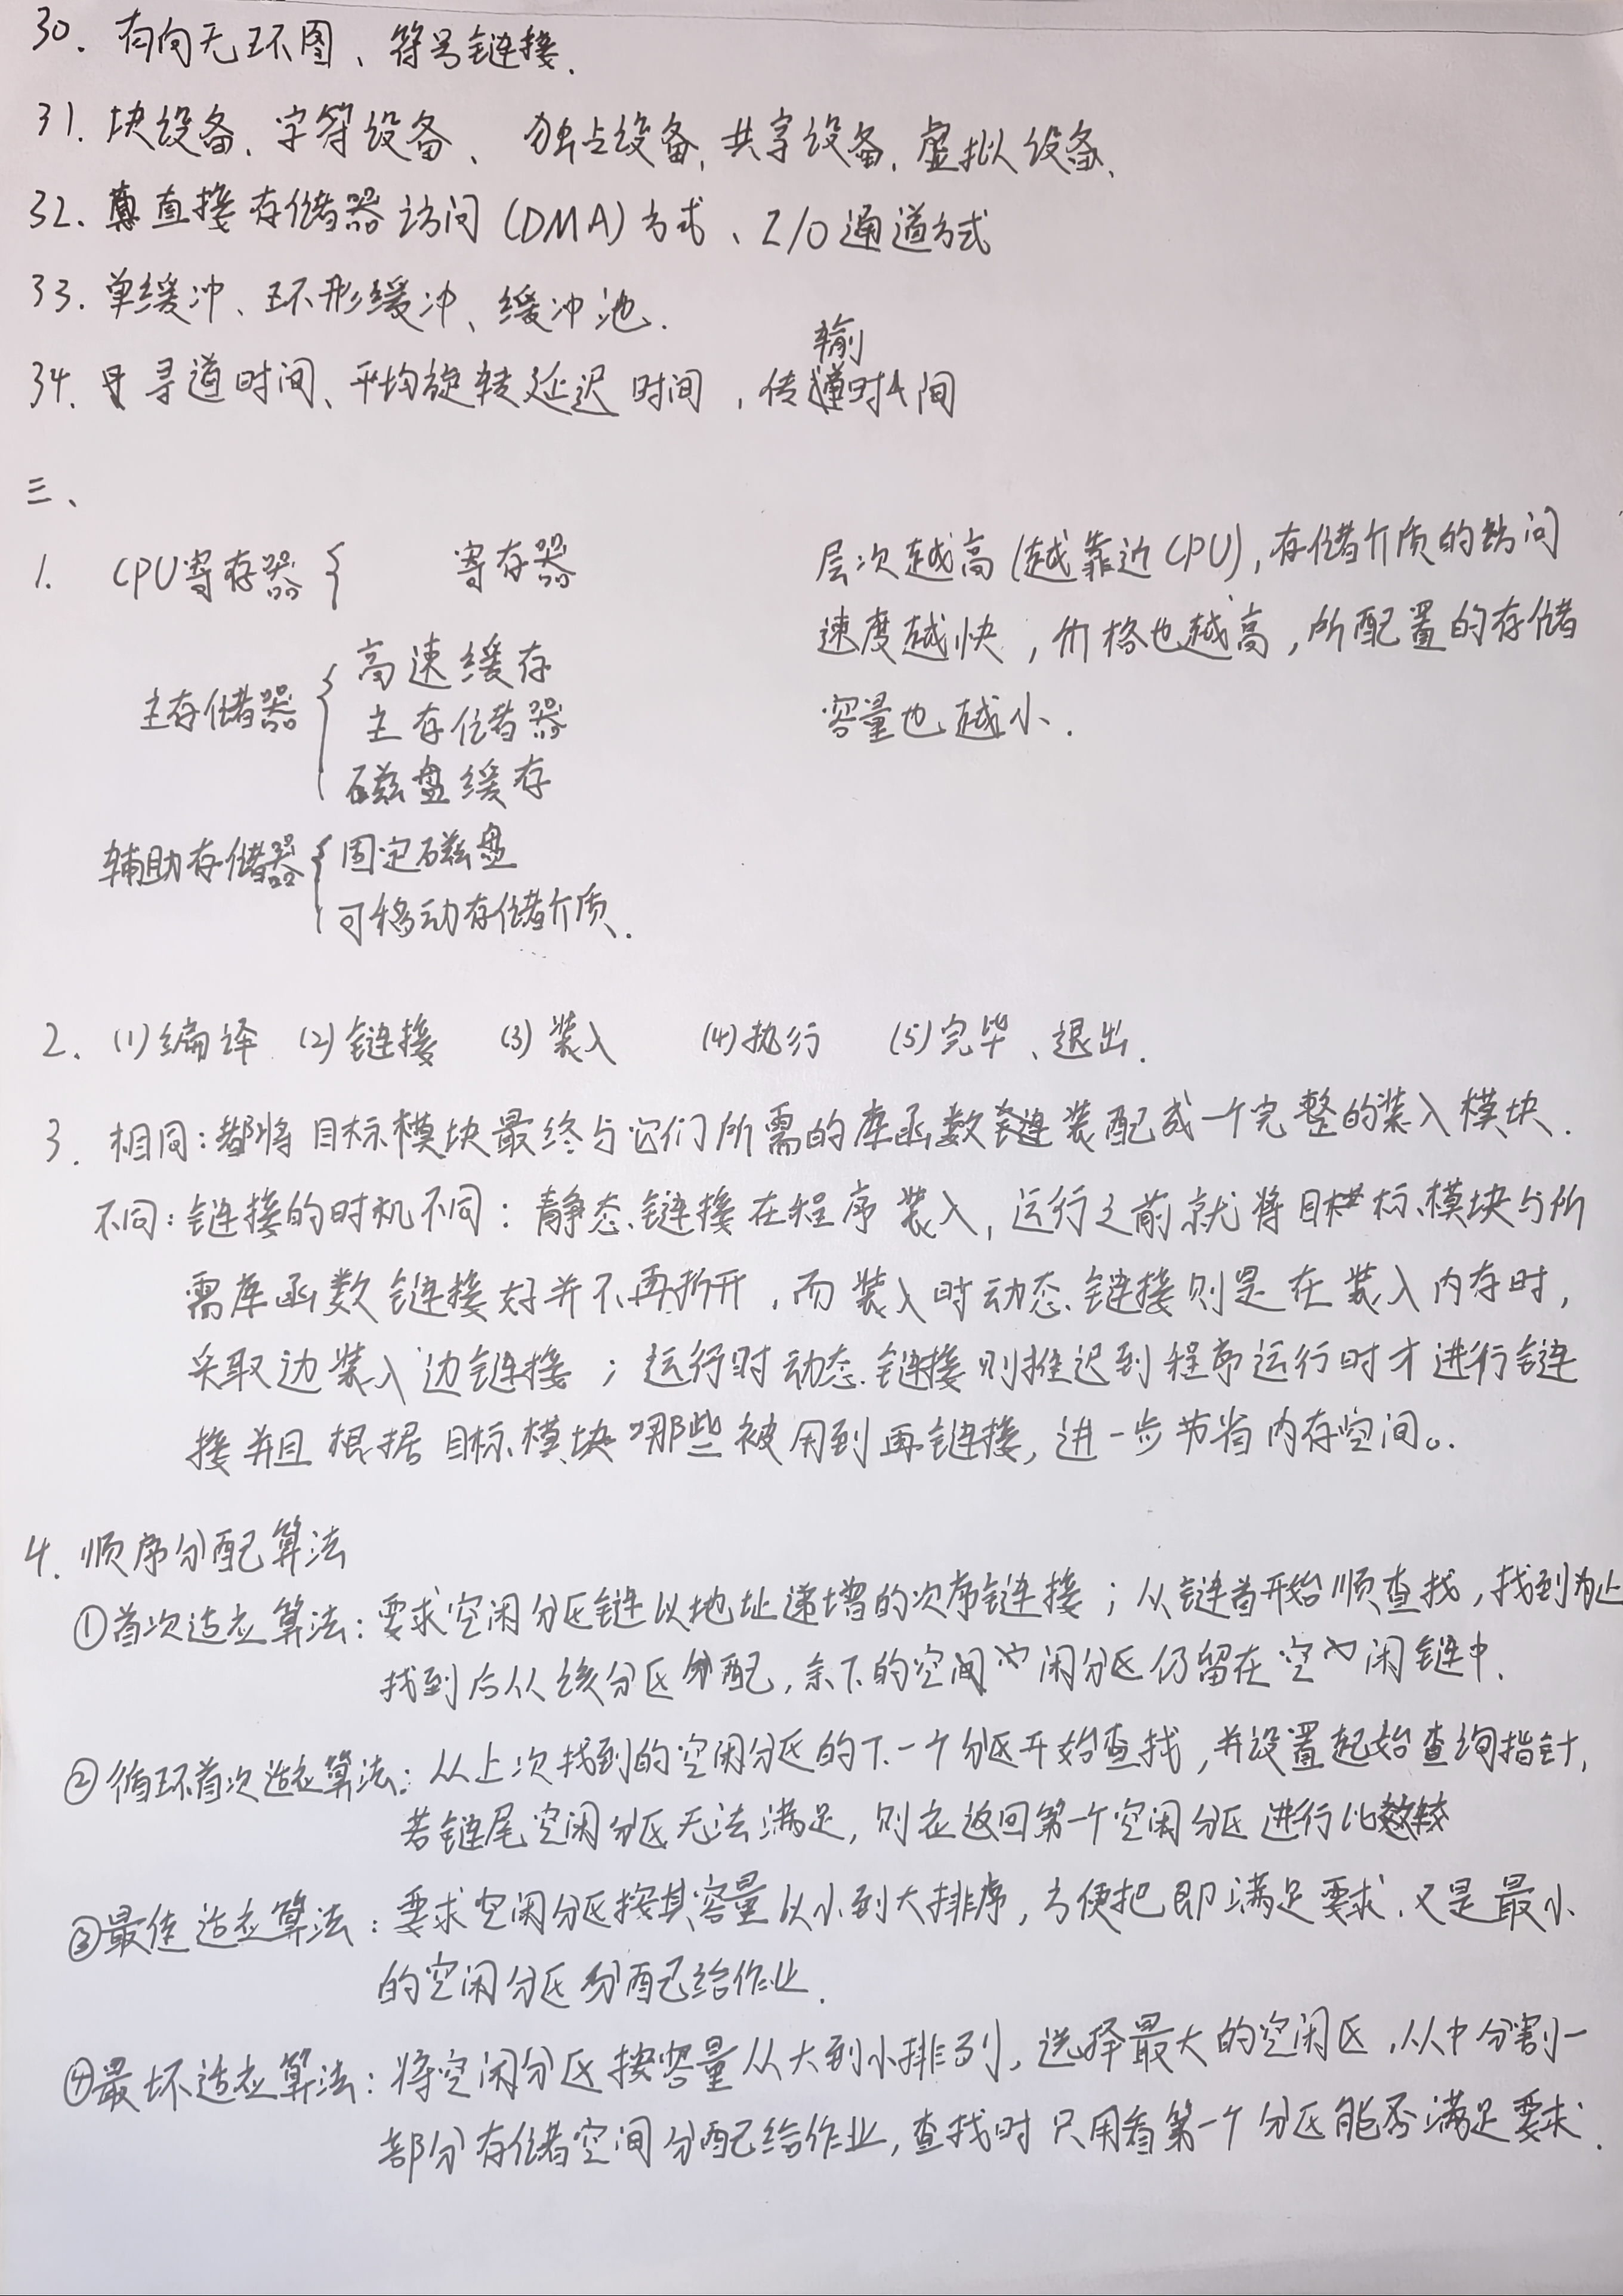 30. 有向无环图、符号链接.
31. 块设备、字符设备、独占设备、共享设备、虚拟设备、
32. 直接存储器访问(DMA)方式、I/O通道方式
33. 单缓冲、环形缓冲、缓冲池.
34. 寻道时间、平均旋转延迟时间,传输时间
三、
1. CPU寄存器{ 寄存器
主存储器{ 高速缓存
主存储器
磁盘缓存
辅助存储器{ 固定磁盘
可移动存储介质.
层次越高(越靠近CPU),存储介质的访问
速度越快,价格也越高,所配置的存储
容量也越小.
2. (1)编译 (2)链接 (3)装入 (4)执行 (5)完毕、退出.
3. 相同:都将目标模块最终与它们所需的库函数装配成一个完整的装入模块.
不同:链接的时机不同:静态链接在程序装入,运行之前就将目标模块与所
需库函数链接好并不再拆开,而装入时动态链接则是在装入内存时,
采取边装入边链接;运行时动态链接则推迟到程序运行时才进行链
接并且根据目标模块哪些被用到再链接,进一步节省内存空间。.
4. 顺序分配算法
①首次适应算法:要求空闲分区链以地址递增的次序链接;从链首开始顺查找,找到为止
找到后从该分区分配,余下的空闲分区仍留在空闲链中.
②循环首次适应算法:从上次找到的空闲分区的下一个分区开始查找,并设置起始查询指针,
若链尾空闲分区无法满足,则应返回第一个空闲分区进行比较
③最佳适应算法:要求空闲分区按其容量从小到大排序,方便把即满足要求、又是最小
的空闲分区分配给作业.
④最坏适应算法:将空闲分区按容量从大到小排列,选择最大的空闲区,从中分割一
部分存储空间分配给作业,查找时只用看第一个分区能否满足要求.